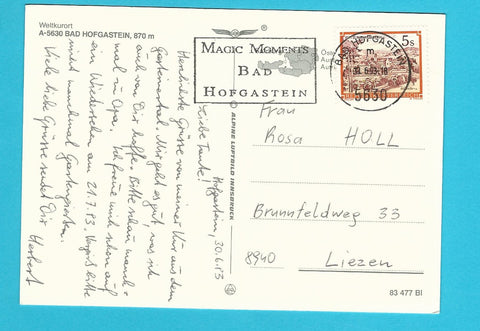 Weltkurort
A-5630 BAD HOFGASTEIN, 870 m
Hofgastein, 30.6.93
Liebe Tante!
Herzlichste Grüsse von meiner Kur aus dem
Gasteinertal. Mir geht es gut, was ich
auch von Dir hoffe. Bitte schau manch-
mal zu Opa. Ich freue mich schon auf
ein Wiedersehen am 21.7.93. Vergiß bitte
nicht manchmal Gartengießen.
Viele liebe Grüsse sendet Dir Herbert
ALPINE LUFTBILD INNSBRUCK
MAGIC MOMENTS
BAD
HOFGASTEIN
BAD HOFGASTEIN
5630
5s
Frau
Rosa HOLL
Brunnfeldweg 33
8940 Liezen
83 477 BI